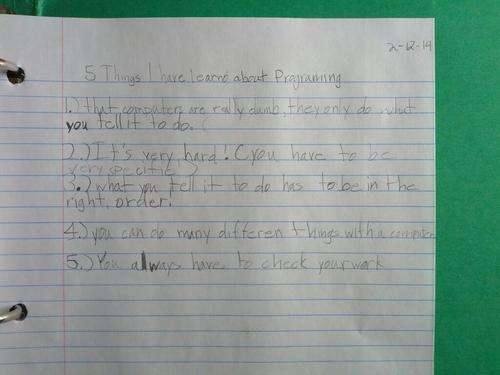 2-12-14
5 Things I have learnd about Programing
1.) that computers are really dumb, they only do what
you tell it to do.
2.) It's very hard! (you have to be
very specific)
3.) what you tell it to do has to be in the
right, order!
4.) you can do many differen things with a computer
5.) You always have to check your work